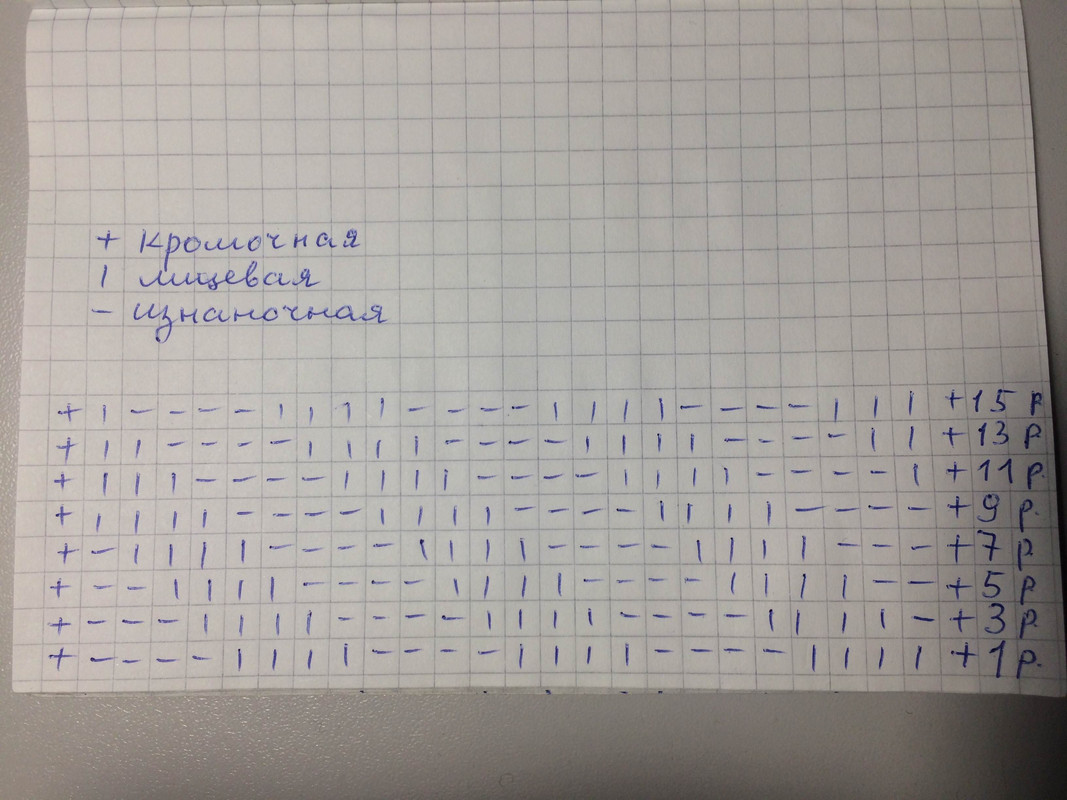 + кромочная
| лицевая
- изнаночная
+ | - - - - | | | | - - - - | | | | - - - - | | | + 15 р
+ | | - - - - | | | | - - - - | | | | - - - - | | + 13 р
+ | | | - - - - | | | | - - - - | | | | - - - - | + 11 р.
+ | | | | - - - - | | | | - - - - | | | | - - - - + 9 р.
+ - | | | | - - - - | | | | - - - - | | | | - - - + 7 р
+ - - | | | | - - - - | | | | - - - - | | | | - - + 5 р
+ - - - | | | | - - - - | | | | - - - - | | | | - + 3 р.
+ - - - - | | | | - - - - | | | | - - - - | | | | + 1 р.